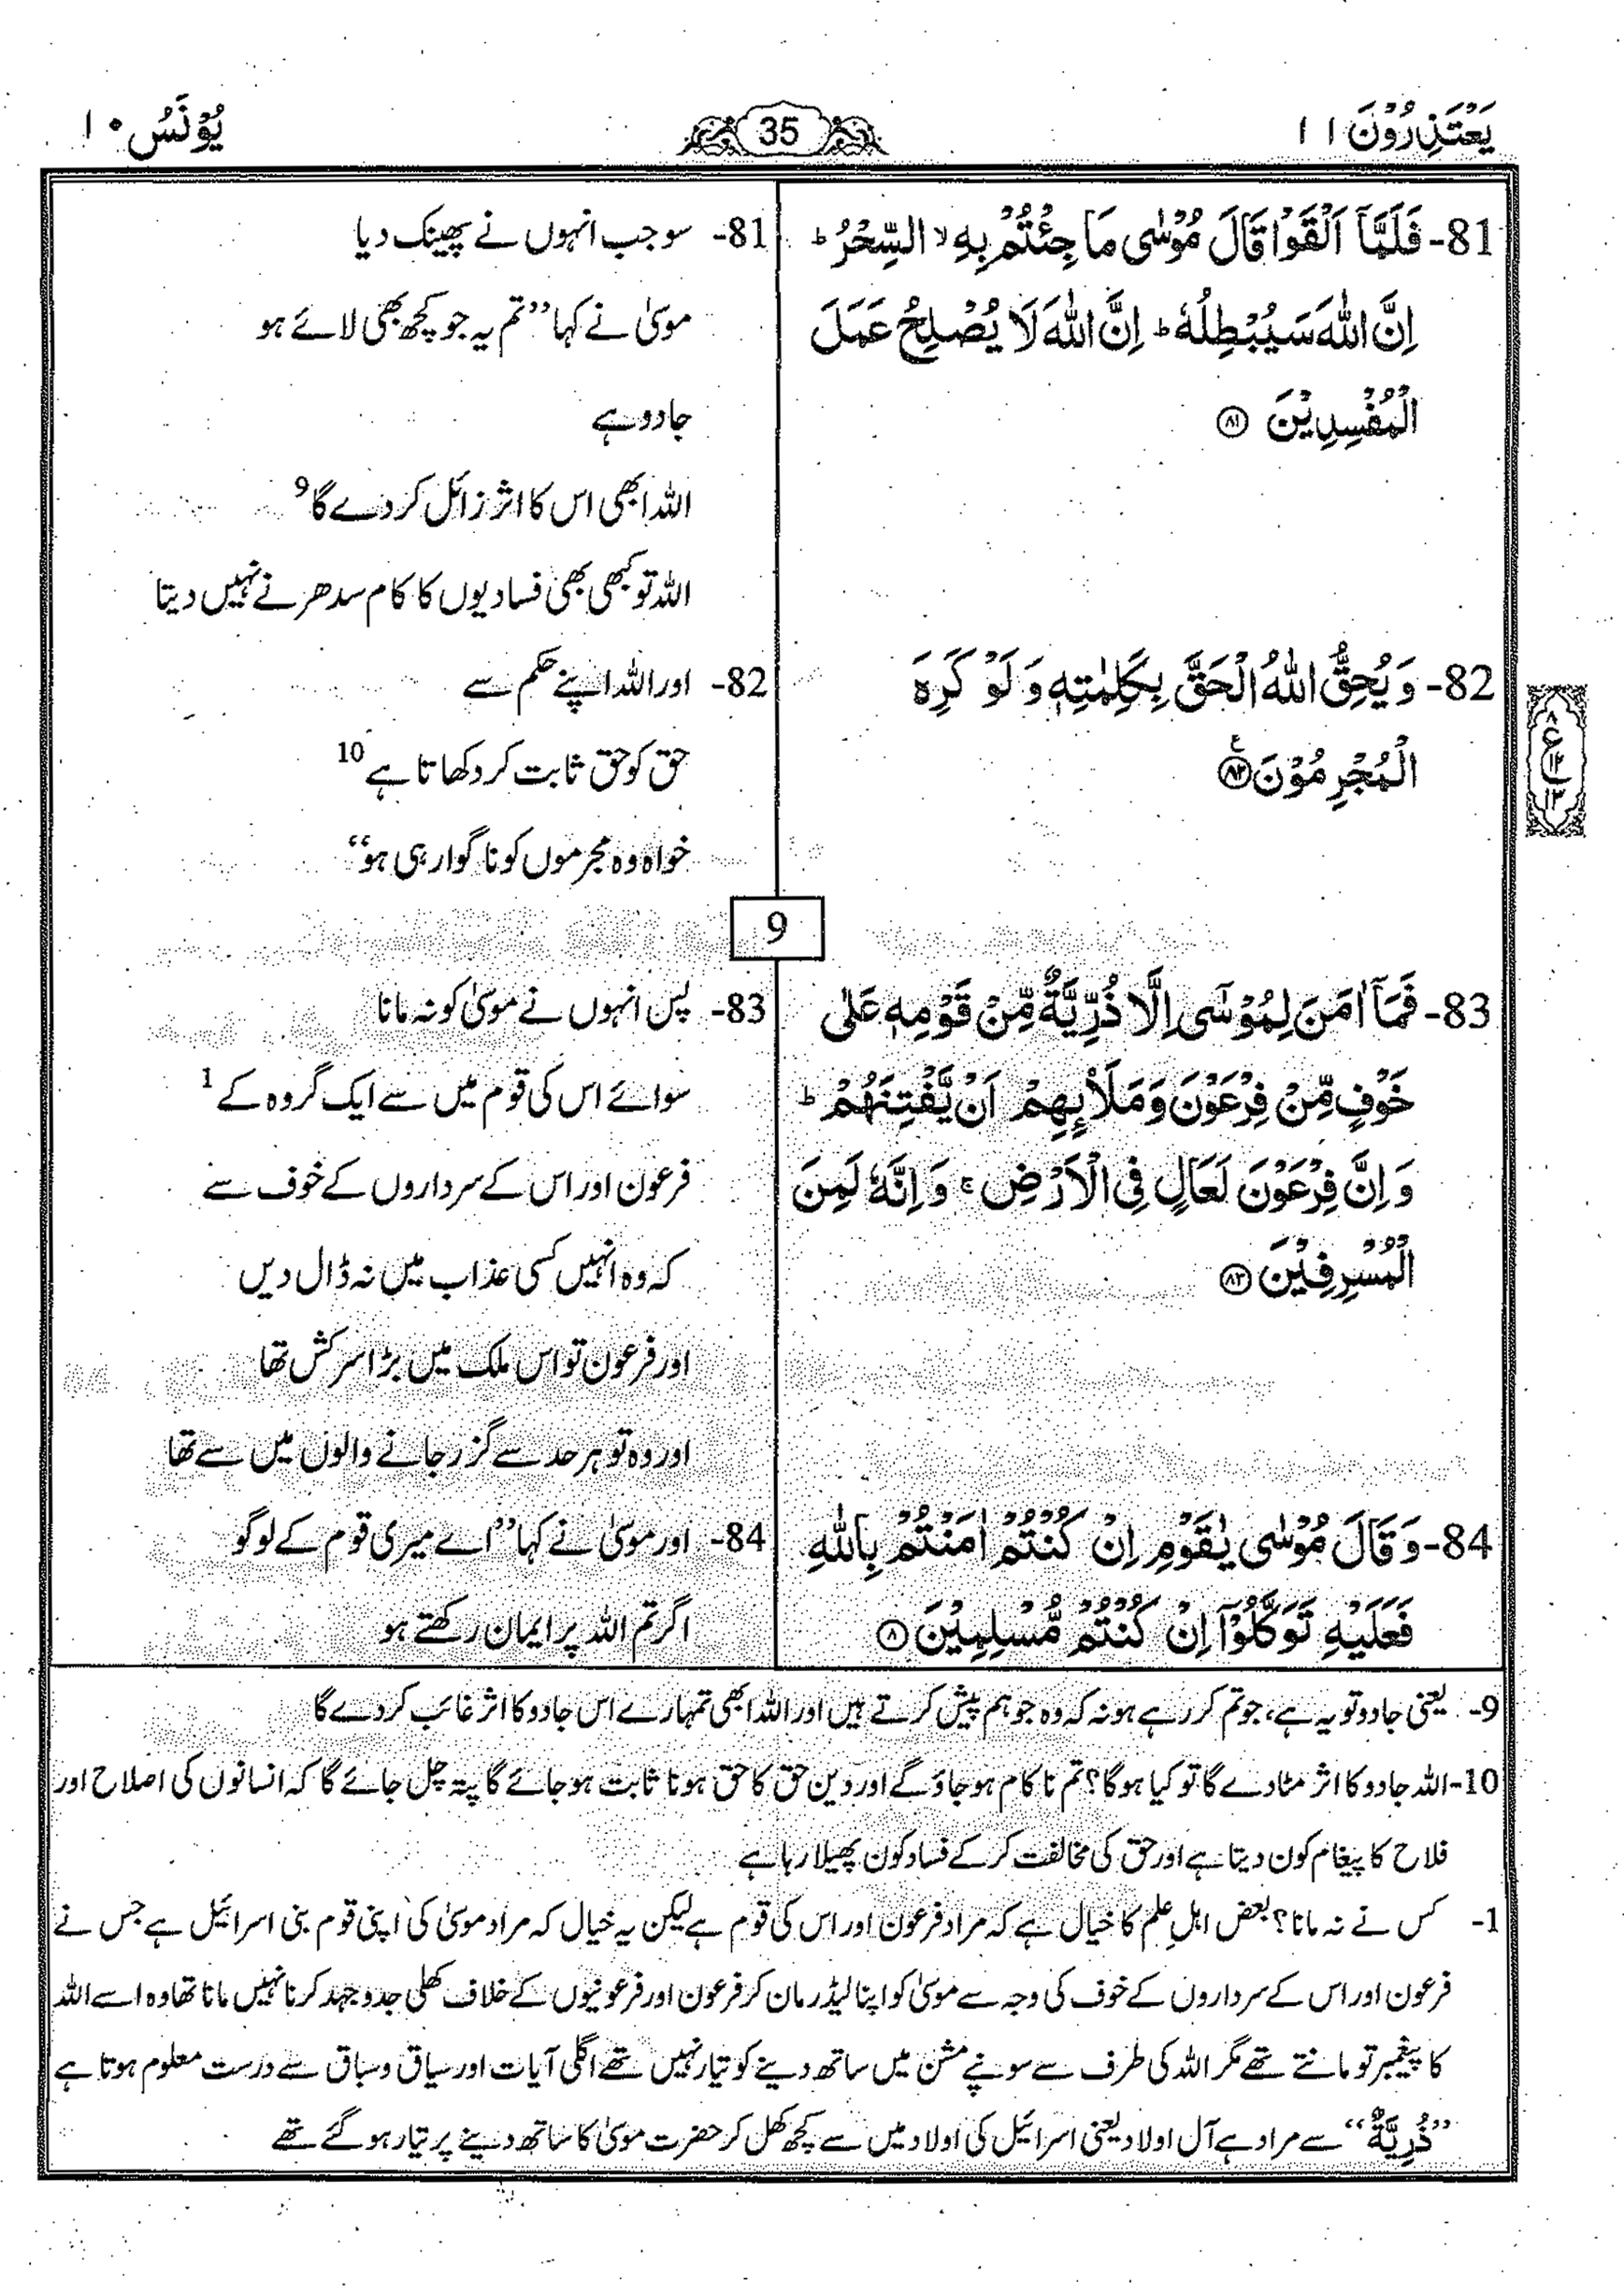 یَعْتَذِرُوْنَ ۱۱
35
یُوْنَس ۱۰
81- فَلَمَّاۤ اَلْقَوْا قَالَ مُوْسٰی مَا جِئْتُمْ بِهِ ۙ السِّحْرُ ؕ
اِنَّ اللّٰهَ سَیُبْطِلُهٗ ؕ اِنَّ اللّٰهَ لَا یُصْلِحُ عَمَلَ
الْمُفْسِدِیْنَ ﴿۸۱﴾
82- وَ یُحِقُّ اللّٰهُ الْحَقَّ بِكَلِمٰتِهٖ وَ لَوْ كَرِهَ
الْمُجْرِمُوْنَ ﴿۸۲﴾ ع
۸
ع
۱۲
۱۳
81- سو جب انہوں نے پھینک دیا
موسیٰ نے کہا ”تم یہ جو کچھ بھی لائے ہو
جادو ہے
اللہ ابھی اس کا اثر زائل کر دے گا 9
اللہ تو کبھی بھی فسادیوں کا کام سدھرنے نہیں دیتا
82- اور اللہ اپنے حکم سے
حق کو حق ثابت کر دکھاتا ہے 10
خواہ وہ مجرموں کو ناگوار ہی ہو“
9
83- فَمَاۤ اٰمَنَ لِمُوْسٰۤی اِلَّا ذُرِّیَّةٌ مِّنْ قَوْمِهٖ عَلٰی
خَوْفٍ مِّنْ فِرْعَوْنَ وَ مَلَاۡىِٕهِمْ اَنْ یَّفْتِنَهُمْ ؕ
وَ اِنَّ فِرْعَوْنَ لَعَالٍ فِی الْاَرْضِ ۚ وَ اِنَّهٗ لَمِنَ
الْمُسْرِفِیْنَ ﴿۸۳﴾
84- وَ قَالَ مُوْسٰی یٰقَوْمِ اِنْ كُنْتُمْ اٰمَنْتُمْ بِاللّٰهِ
فَعَلَیْهِ تَوَكَّلُوْۤا اِنْ كُنْتُمْ مُّسْلِمِیْنَ ﴿۸﴾
83- پس انہوں نے موسیٰ کو نہ مانا
سوائے اس کی قوم میں سے ایک گروہ کے 1
فرعون اور اس کے سرداروں کے خوف سے
کہ وہ انہیں کسی عذاب میں نہ ڈال دیں
اور فرعون تو اس ملک میں بڑا سرکش تھا
اور وہ تو ہر حد سے گزر جانے والوں میں سے تھا
84- اور موسیٰ نے کہا ”اے میری قوم کے لوگو
اگر تم اللہ پر ایمان رکھتے ہو
9- یعنی جادو تو یہ ہے، جو تم کر رہے ہو نہ کہ وہ جو ہم پیش کرتے ہیں اور اللہ ابھی تمہارے اس جادو کا اثر غائب کر دے گا
10- اللہ جادو کا اثر مٹا دے گا تو کیا ہوگا؟ تم ناکام ہو جاؤ گے اور دین حق کا حق ہونا ثابت ہو جائے گا پتہ چل جائے گا کہ انسانوں کی اصلاح اور
فلاح کا پیغام کون دیتا ہے اور حق کی مخالفت کر کے فساد کون پھیلا رہا ہے
1- کس نے نہ مانا؟ بعض اہلِ علم کا خیال ہے کہ مراد فرعون اور اس کی قوم ہے لیکن یہ خیال کہ مراد موسیٰ کی اپنی قوم بنی اسرائیل ہے جس نے
فرعون اور اس کے سرداروں کے خوف کی وجہ سے موسیٰ کو اپنا لیڈر مان کر فرعون اور فرعونیوں کے خلاف کھلی جدوجہد کرنا نہیں مانا تھا وہ اسے اللہ
کا پیغمبر تو مانتے تھے مگر اللہ کی طرف سے سونپے مشن میں ساتھ دینے کو تیار نہیں تھے اگلی آیات اور سیاق و سباق سے درست معلوم ہوتا ہے
”ذُرِیَّةٌ“ سے مراد ہے آل اولاد یعنی اسرائیل کی اولاد میں سے کچھ کھل کر حضرت موسیٰ کا ساتھ دینے پر تیار ہو گئے تھے